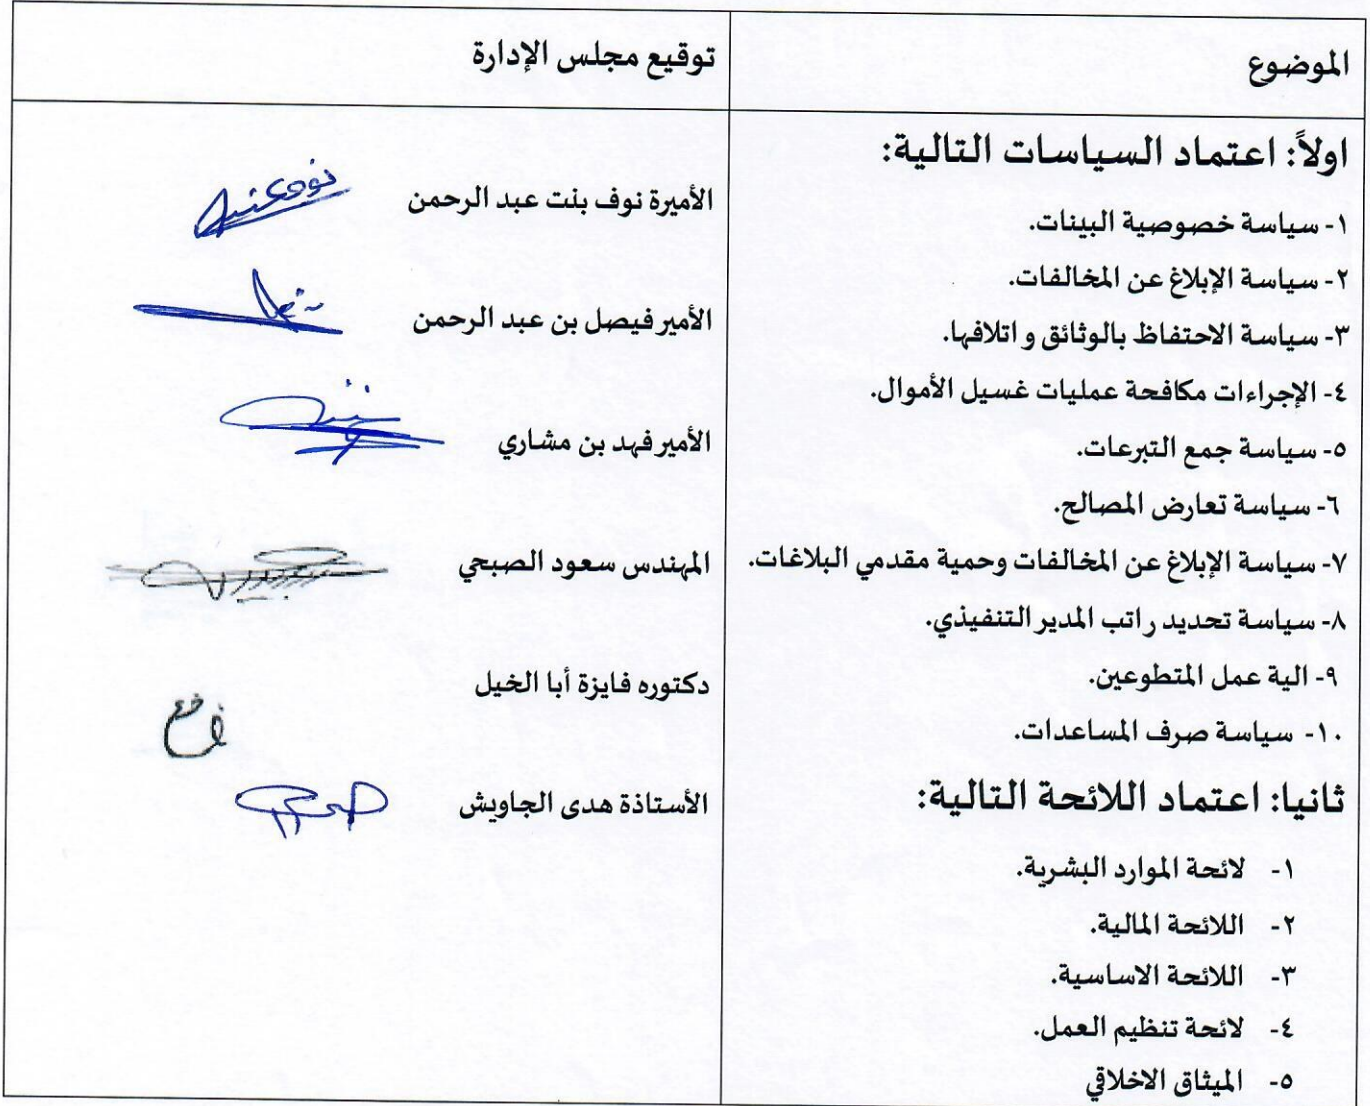 الموضوع
توقيع مجلس الإدارة
اولاً: اعتماد السياسات التالية:
١- سياسة خصوصية البينات.
٢- سياسة الإبلاغ عن المخالفات.
٣- سياسة الاحتفاظ بالوثائق و اتلافها.
٤- الإجراءات مكافحة عمليات غسيل الأموال.
٥- سياسة جمع التبرعات.
٦- سياسة تعارض المصالح.
٧- سياسة الإبلاغ عن المخالفات وحمية مقدمي البلاغات.
٨- سياسة تحديد راتب المدير التنفيذي.
٩- الية عمل المتطوعين.
١٠- سياسة صرف المساعدات.
ثانيا: اعتماد اللائحة التالية:
١- لائحة الموارد البشرية.
٢- اللائحة المالية.
٣- اللائحة الاساسية.
٤- لائحة تنظيم العمل.
٥- الميثاق الاخلاقي
الأميرة نوف بنت عبد الرحمن
الأمير فيصل بن عبد الرحمن
الأمير فهد بن مشاري
المهندس سعود الصبحي
دكتوره فايزة أبا الخيل
الأستاذة هدى الجاويش